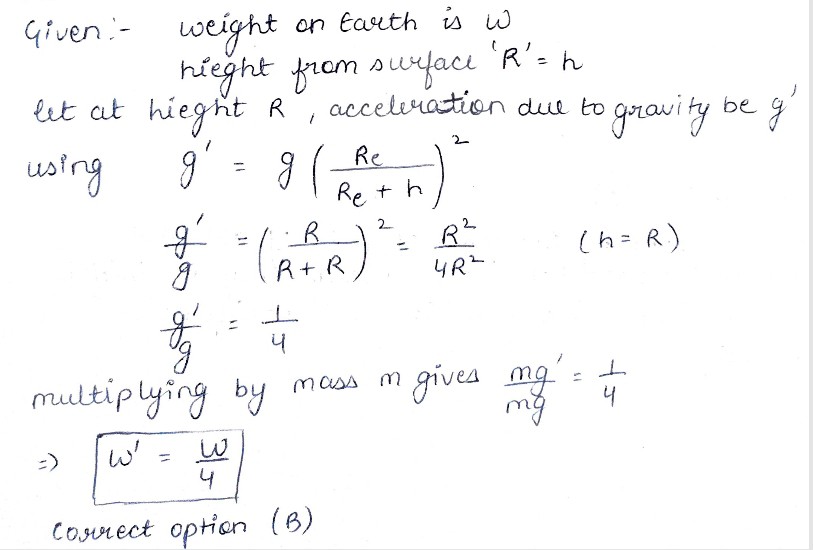 Given:- weight on Earth is w
hieght from surface 'R' = h
let at hieght R , acceleration due to gravity be g'
using g' = g (Re / Re + h)²
g'/g = (R / R + R)² = R²/4R² (h = R)
g'/g = 1/4
multiplying by mass m gives mg'/mg = 1/4
=> w' = w/4
correct option (B)